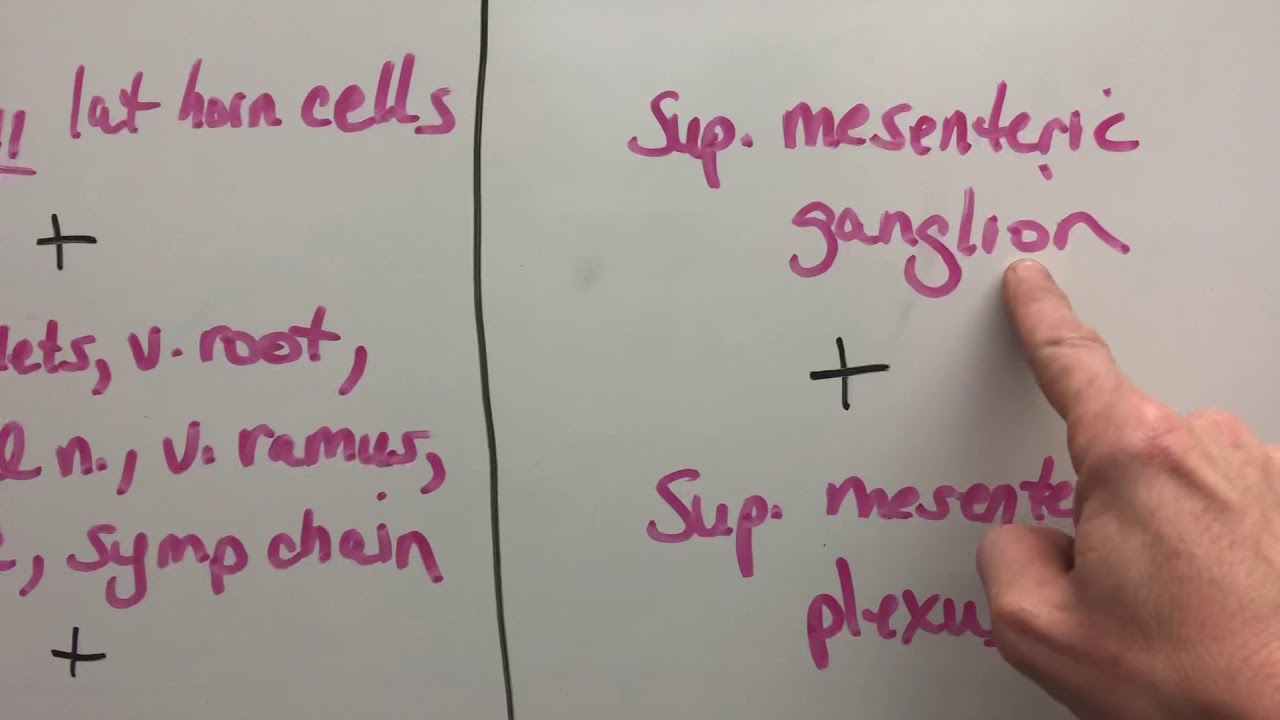 11 lat horn cells
+
lets, v. root,
l n., v. ramus,
, symp chain
+
Sup. mesenteric
ganglion
+
Sup. mesente
plexus